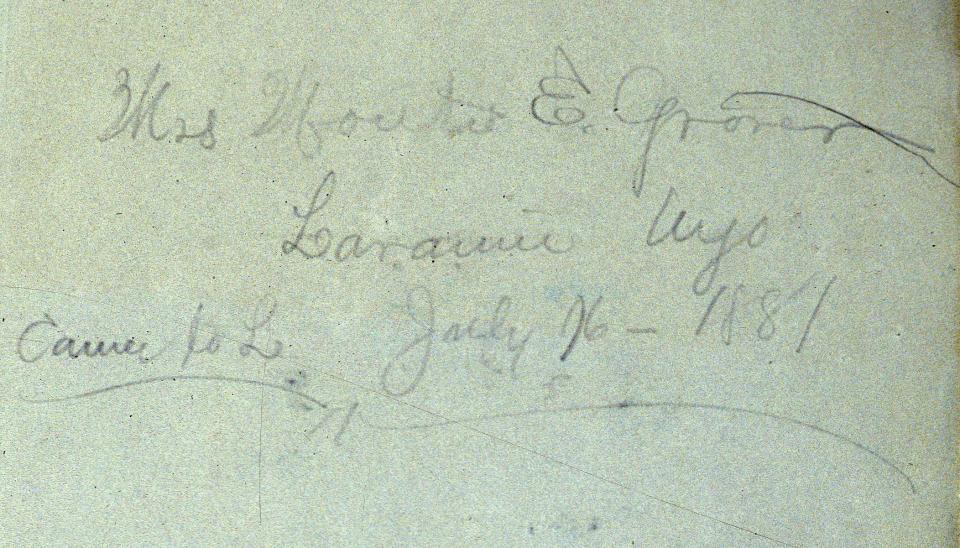 Mrs E. Grover
Laramie Wyo
Came to L July 16 - 1881